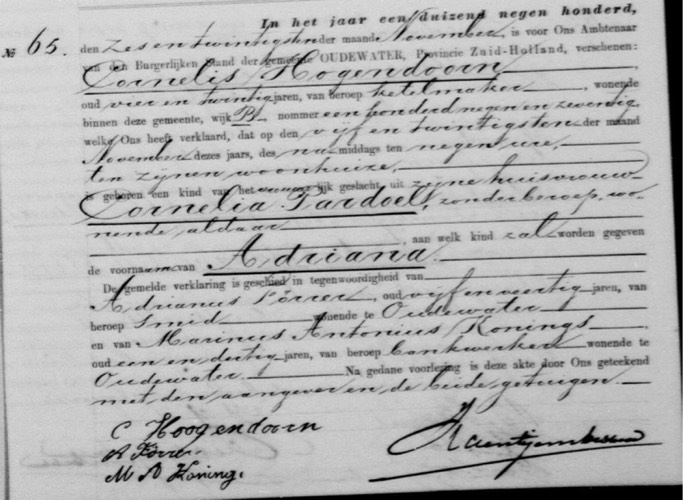 In het jaar een duizend negen honderd,
№ 65. den zes en twintigsten der maand November, is voor Ons Ambtenaar
van den Burgerlijken Stand der gemeente OUDEWATER, Provincie Zuid-Holland, verschenen:
Cornelis Hogendoorn
oud vier en twintig jaren, van beroep ketelmaker, wonende
binnen deze gemeente, wijk B. nommer een honderd negen en zeventig
welke Ons heeft verklaard, dat op den vijf en twintigsten der maand
November dezes jaars, des na middags ten negen ure,
ten zijnen woonhuize,
is geboren een kind van het lijk geslacht, uit zijne huisvrouw
Cornelia Pardoel, zonder beroep, wo-
nende aldaar
aan welk kind zal worden gegeven
de voornaam van Adriana.
De gemelde verklaring is geschied in tegenwoordigheid van
Adrianus Förrer, oud vijf en veertig jaren, van
beroep Smid wonende te Oudewater
en van Marinus Antonius Konings,
oud een en dertig jaren, van beroep bankwerker wonende te
Oudewater Na gedane voorlezing is deze akte door Ons geteekend
met den aangever en de beide getuigen.
C Hoogendoorn
A Förrer
M A Konings